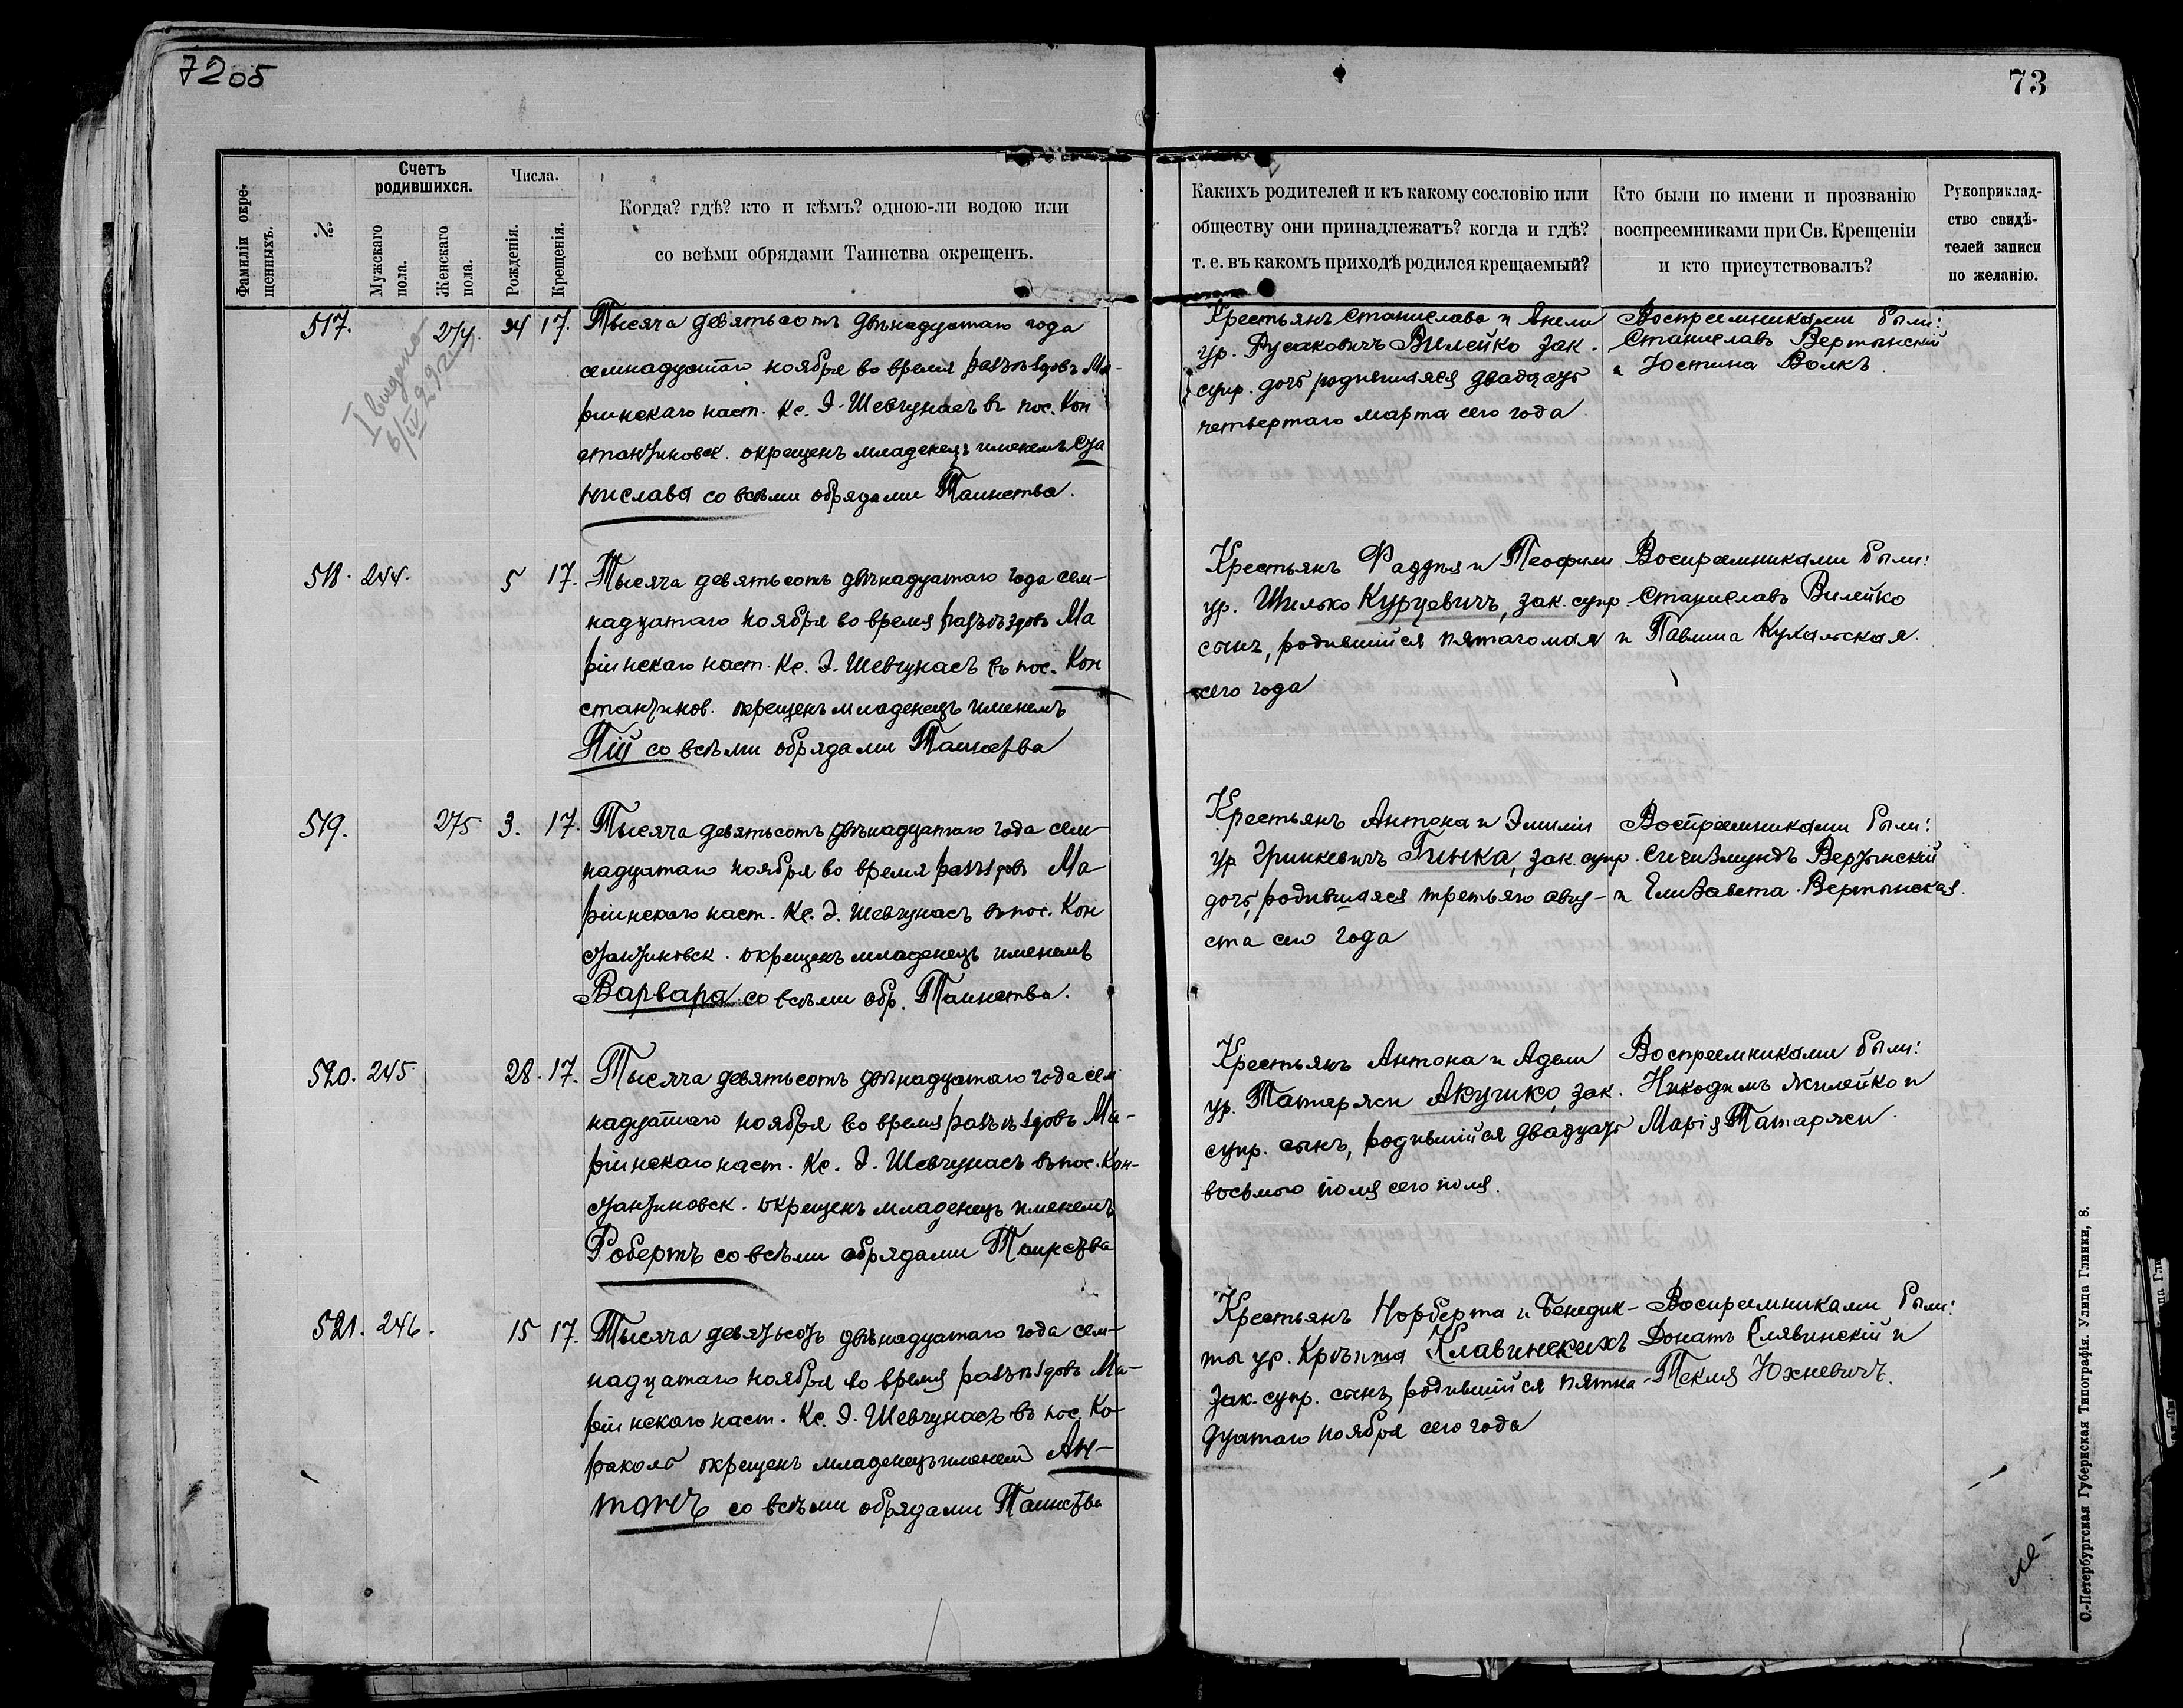 72об
73
Фамиліи окре-
щенныхъ.
№
Счетъ
родившихся.
Мужскаго
пола.
Женскаго
пола.
Числа.
Рожденія.
Крещенія.
Когда? гдѣ? кто и кѣмъ? одною-ли водою или
со всѣми обрядами Таинства окрещенъ.
Какихъ родителей и къ какому сословію или
обществу они принадлежатъ? когда и гдѣ?
т. е. въ какомъ приходѣ родился крещаемый?
Кто были по имени и прозванію
воспреемниками при Св. Крещеніи
и кто присутствовалъ?
Рукоприклад-
ство свидѣ-
телей записи
по желанію.
517. 274. 24 17.
I видено
6/IV 292
Тысяча девятьсотъ двѣнадцатаго года
семнадцатаго ноября во время разъѣздовъ Ма-
ріинскаго наст. Кс. Э. Шевчунасъ въ пос. Кон
стантиновск. окрещенъ младенецъ именемъ Ста
нислава со всѣми обрядами Таинства.
Крестьянъ Станислава и Анели
ур. Русаковичъ Вилейко зак.
супр. дочь родившаяся двадцать
четвертаго марта сего года
Воспреемниками были:
Станиславъ Вертынскій
и Юстина Волкъ.
518. 244. 5 17.
Тысяча девятьсотъ двѣнадцатаго года сем-
надцатаго ноября во время разъѣздовъ Ма
ріинскаго наст. Кс. Э. Шевчунасъ въ пос. Кон
стантинов. окрещенъ младенецъ именемъ
Пій со всѣми обрядами Таинства
Крестьянъ Фаддея и Теофили
ур. Шилько Курцевичъ, зак. супр.
сынъ, родившійся пятаго мая
сего года
Воспреемниками были:
Станиславъ Вилейко
и Павлина Кукальская.
519. 275 3. 17.
Тысяча девятьсотъ двѣнадцатаго года сем-
надцатаго ноября во время разъѣздовъ Ма
ріинскаго наст. Кс. Э. Шевчунасъ въ пос. Кон
стантиновск. окрещенъ младенецъ именемъ
Варвара со всѣми обр. Таинства.
Крестьянъ Антона и Эмиліи
ур Гринкевичъ Гинка, зак. супр.
дочь, родившаяся третьяго авгу-
ста сего года
Воспреемниками были:
Сигизмундъ Вертынскій
и Елизавета Вертынская.
520. 245. 28. 17.
Тысяча девятьсотъ двѣнадцатаго года сем
надцатаго ноября во время разъѣздовъ Ма-
ріинскаго наст. Кс. Э. Шевчунасъ въ пос. Кон-
стантиновск. окрещенъ младенецъ именемъ
Робертъ со всѣми обрядами Таинства
Крестьянъ Антона и Адели
ур. Татаряси Акушко, зак.
супр. сынъ, родившійся двадцать
восьмого іюля сего іюля.
Воспреемниками были:
Никодимъ Жилейко и
Марія Татаряси.
521. 246. 15 17.
Тысяча девятьсотъ двѣнадцатаго года сем-
надцатаго ноября во время разъѣздовъ Ма-
ріинскаго наст. Кс. Э. Шевчунасъ въ пос. Ко-
раколь окрещенъ младенецъ именемъ Ан-
тонъ со всѣми обрядами Таинства
Крестьянъ Норберта и Бенедик-
ты ур. Крѣпша Клавинскихъ
зак. супр. сынъ родившійся пятна-
дцатаго ноября сего года
Воспреемниками были:
Донатъ Слявинскій и
Текля Юхневичъ.
С.-Петербургская Губернская Типографія. Улица Глинки, 8.